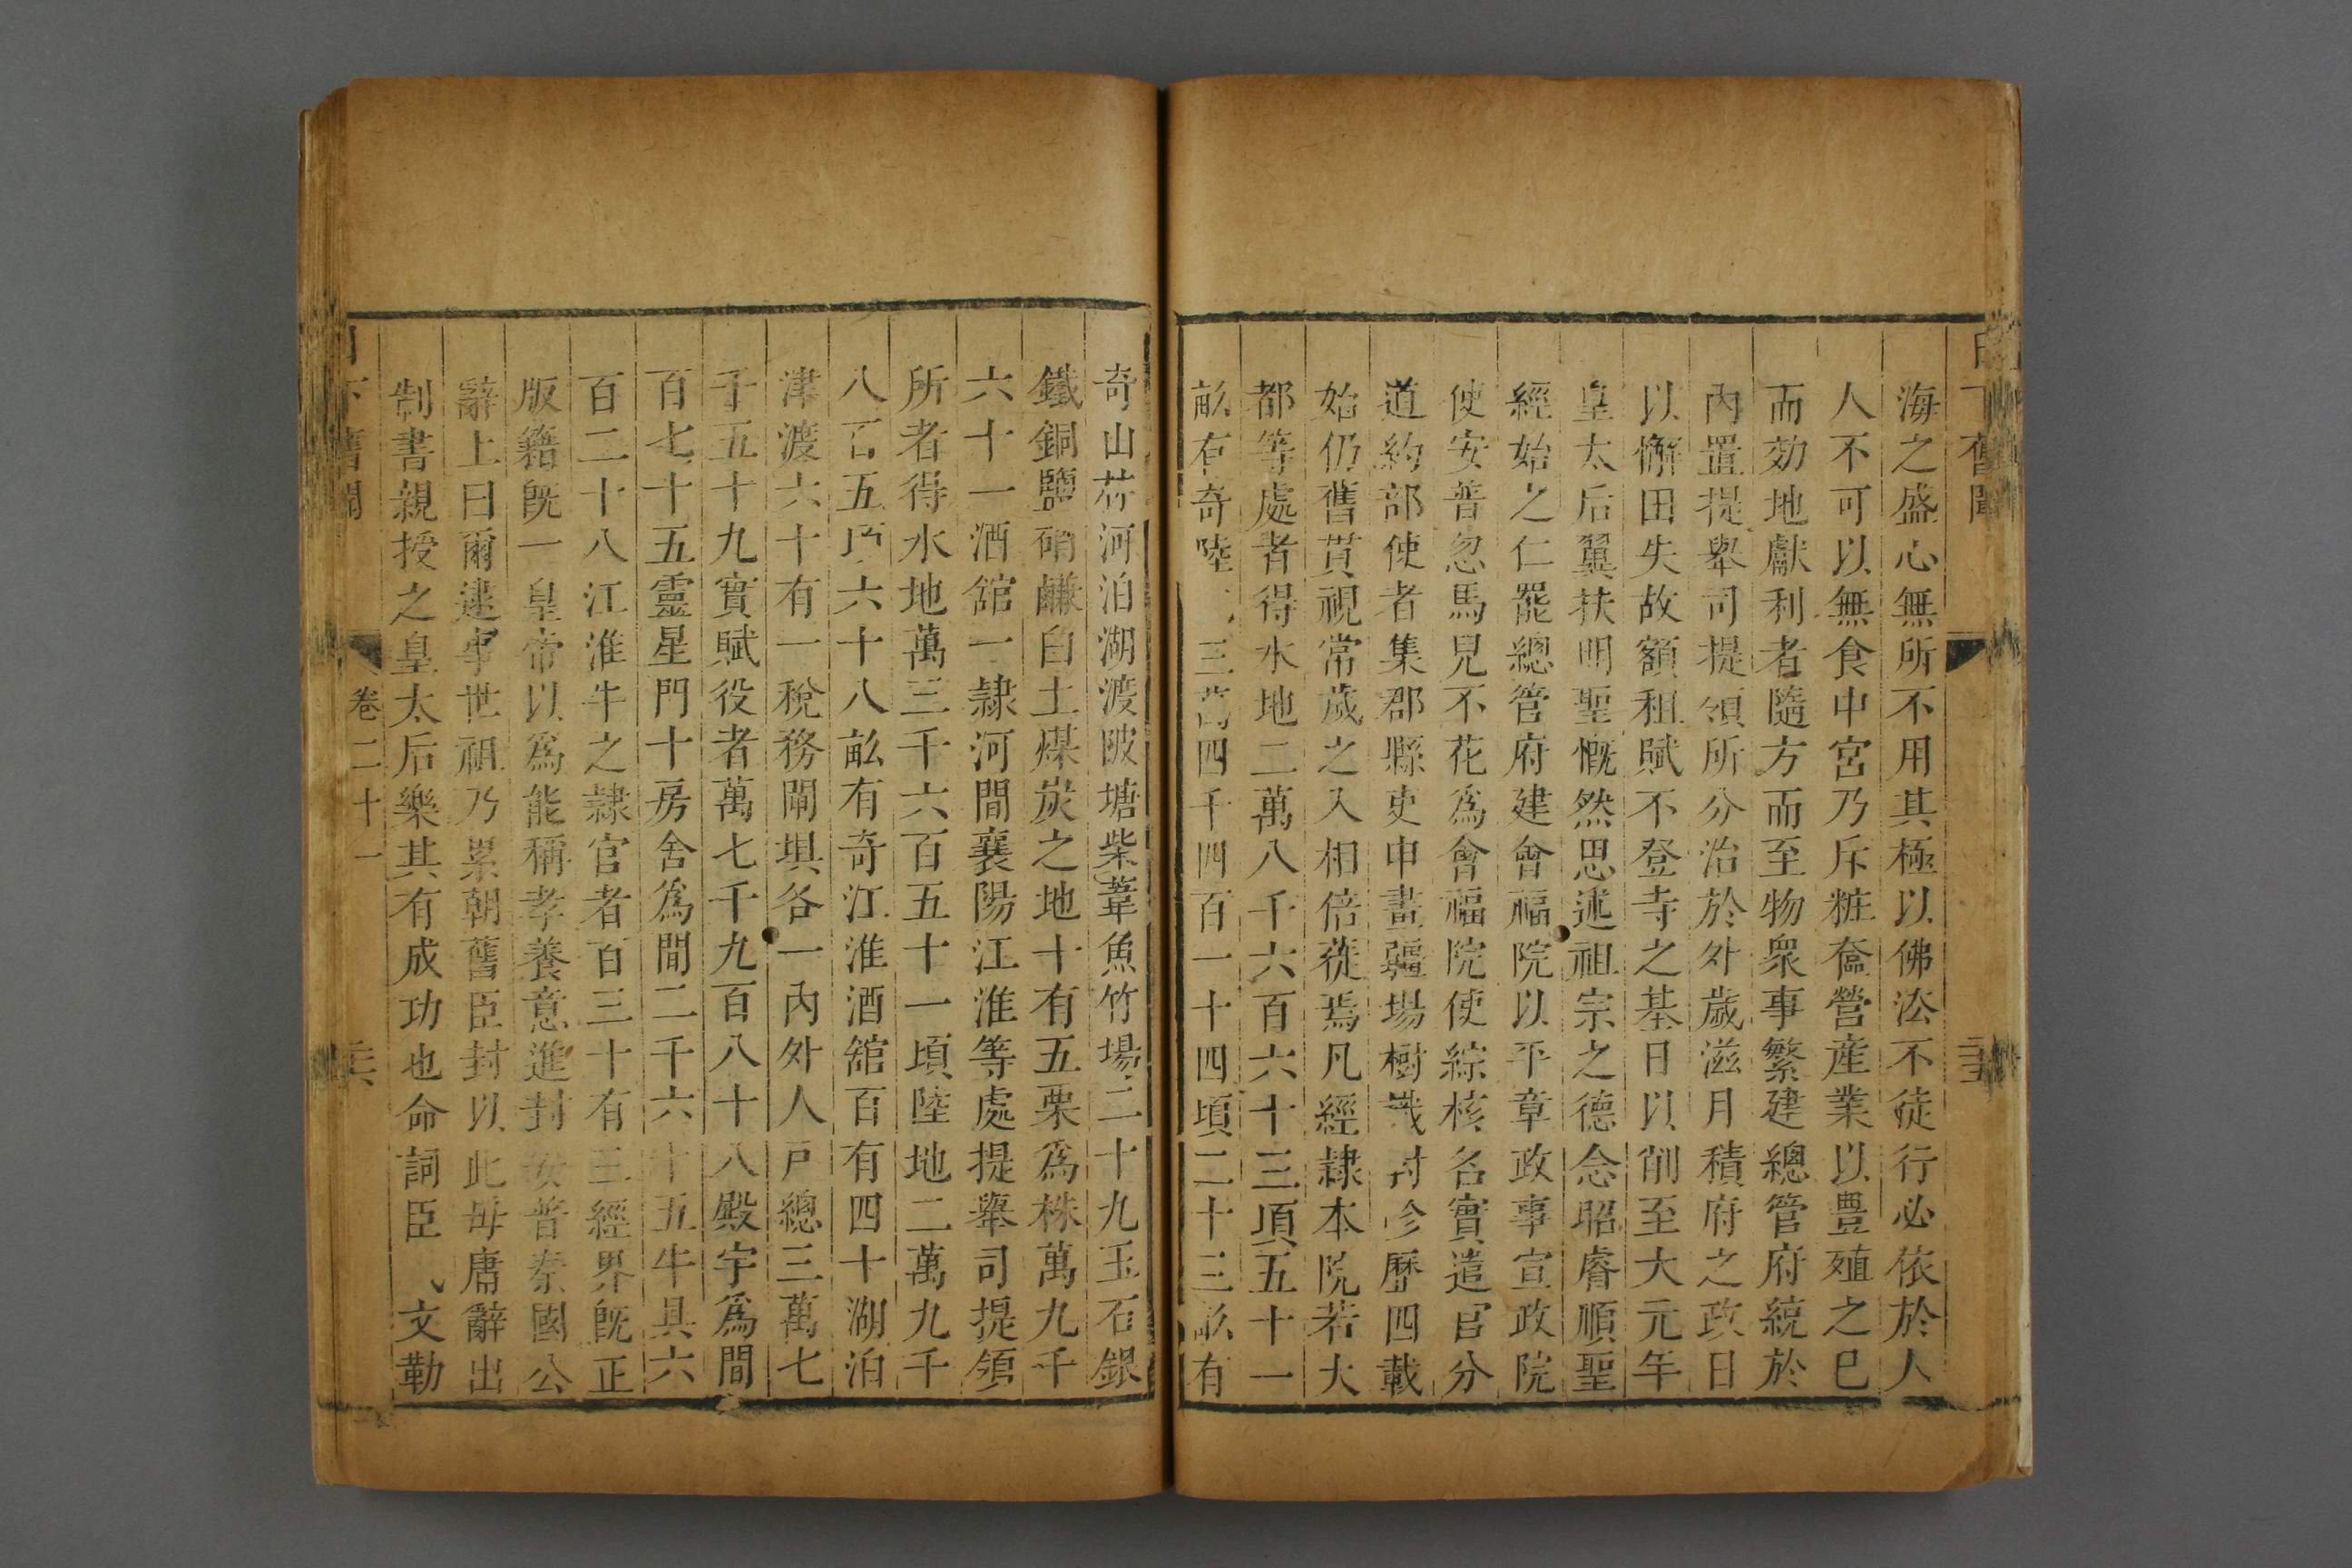 下舊聞
海之盛心無所不用其極以佛法不徒行必依於人
人不可以無食中宮乃斥粧奩營産業以豊殖之已
而効地獻利者隨方而至物衆事繁建總管府統於
內置提舉司提領所分治於外歲滋月積府之政日
以懈田失故額租賦不登寺之基日以削至大元年
皇太后翼扶明聖慨然思述祖宗之德念昭睿順聖
經始之仁罷總管府建會福院以平章政事宣政院
使安普忽馬兒不花為會福院使綜核名實遣官分
道約部使者集郡縣吏申畫疆場樹畿封歷四載
始仍舊貫視常歲之入相倍蓰焉凡經隷本院若大
都等處者得水地二萬八千六百六十三頃五十一
畝有奇陸三萬四千四百一十四頃二十三畝有
奇山林河泊湖渡陂塘柴葦魚竹場二十九玉石銀
鐵銅鹽硝鹻白土煤炭之地十有五栗為株萬九千
六十一酒舘一隷河間襄陽江淮等處提舉司提領
所者得水地萬三千六百五十一頃陸地二萬九千
八百五頃六十八畝有奇江淮酒舘百有四十湖泊
津渡六十有一稅務閘垻各一內外人戶總三萬七
千五十九實賦役者萬七千九百八十八殿宇為間
百七十五靈星門十房舍為間二千六十五牛具六
百二十八江淮牛之隷官者百三十有三經界旣正
版籍旣一皇帝以為能稱孝養意進封安普秦國公
辭上曰爾逮事世祖乃累朝舊臣封以此毋庸辭出
制書親授之皇太后樂其有成功也命詞臣文勒
下舊聞
卷二十一